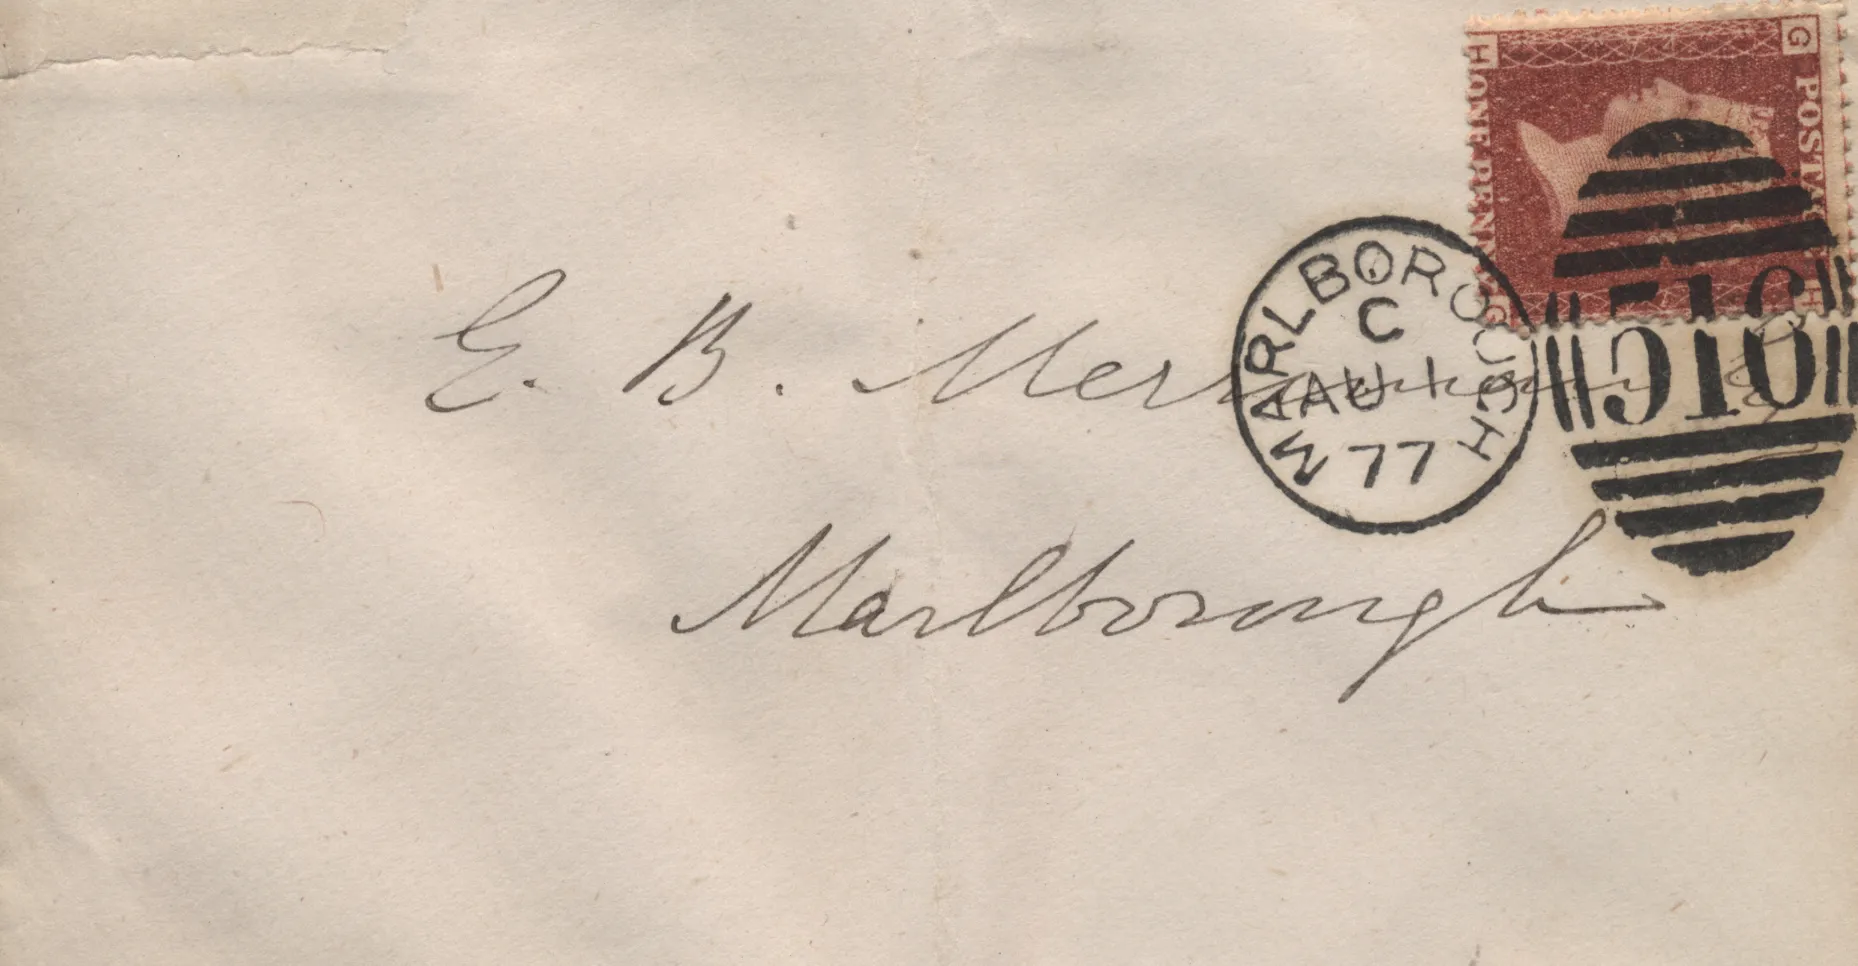 H G
POSTAGE
ONE PENNY
G H
MARLBOROUGH
C
AU 1
77
516
E. B.
Marlborough